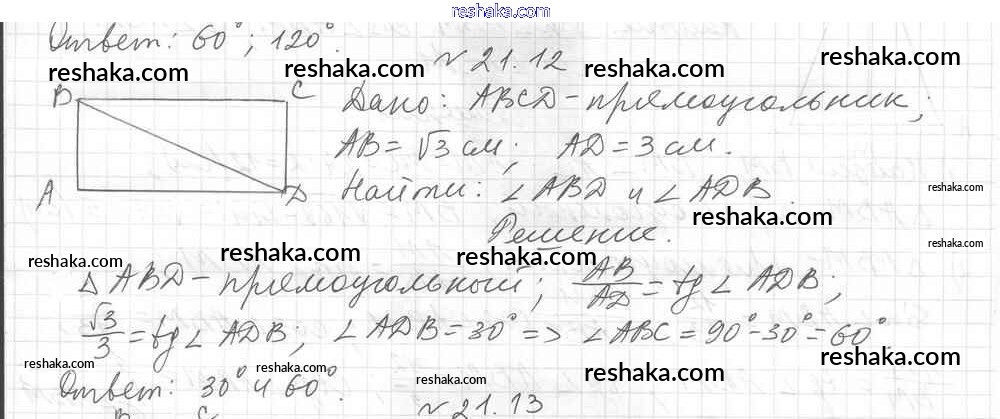 reshaka.com
Ответ: 60°; 120°.
№ 21.12
reshaka.com reshaka.com reshaka.com reshaka.com
B C Дано: ABCD – прямоугольник;
AB = √3 см; AD = 3 см.
A D Найти: ∠ABD и ∠ADB.
reshaka.com
reshaka.com
Решение.
reshaka.com reshaka.com reshaka.com reshaka.com
△ABD – прямоугольный; AB/AD = tg∠ADB;
√3/3 = tg∠ADB; ∠ADB = 30° => ∠ABC = 90° – 30° = 60°
reshaka.com reshaka.com reshaka.com reshaka.com reshaka.com
Ответ: 30° и 60°.
B C № 21.13